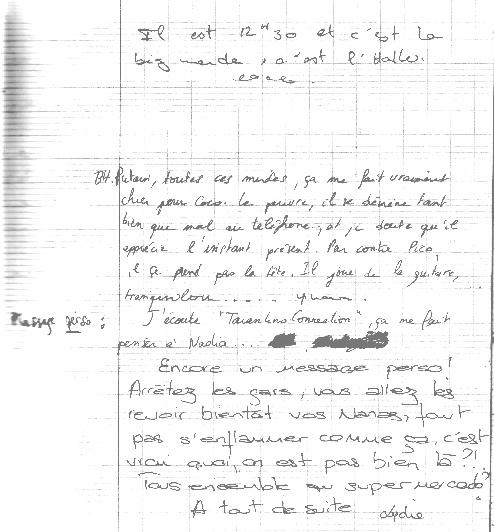 Il est 12H30 et c'est la
big merde, a c'est l'Halle.
coco.
BH. Putain, toutes ces merdes, ça me fait vraiment
chier pour Coco. Le pauvre, il se démène tant
bien que mal au téléphone, et je doute qu'il
apprécie l'instant présent. Par contre Pico,
il se prend pas la tête. Il joue de la guitare,
tranquilou.....
Message perso : J'écoute "Tarantino Connection", ça me fait
penser à Nadia...
Encore un message perso!
Arrêtez les gars, vous allez les
revoir bientôt vos Nanas, faut
pas s'enflammer comme ça, c'est
vrai quoi, on est pas bien là ?!
Tous ensemble au supermercado?
A tout de suite